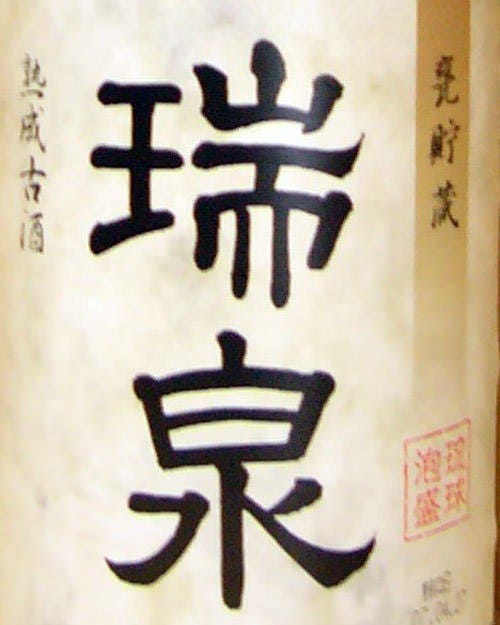 甕貯蔵
瑞泉
熟成古酒
琉球
泡盛